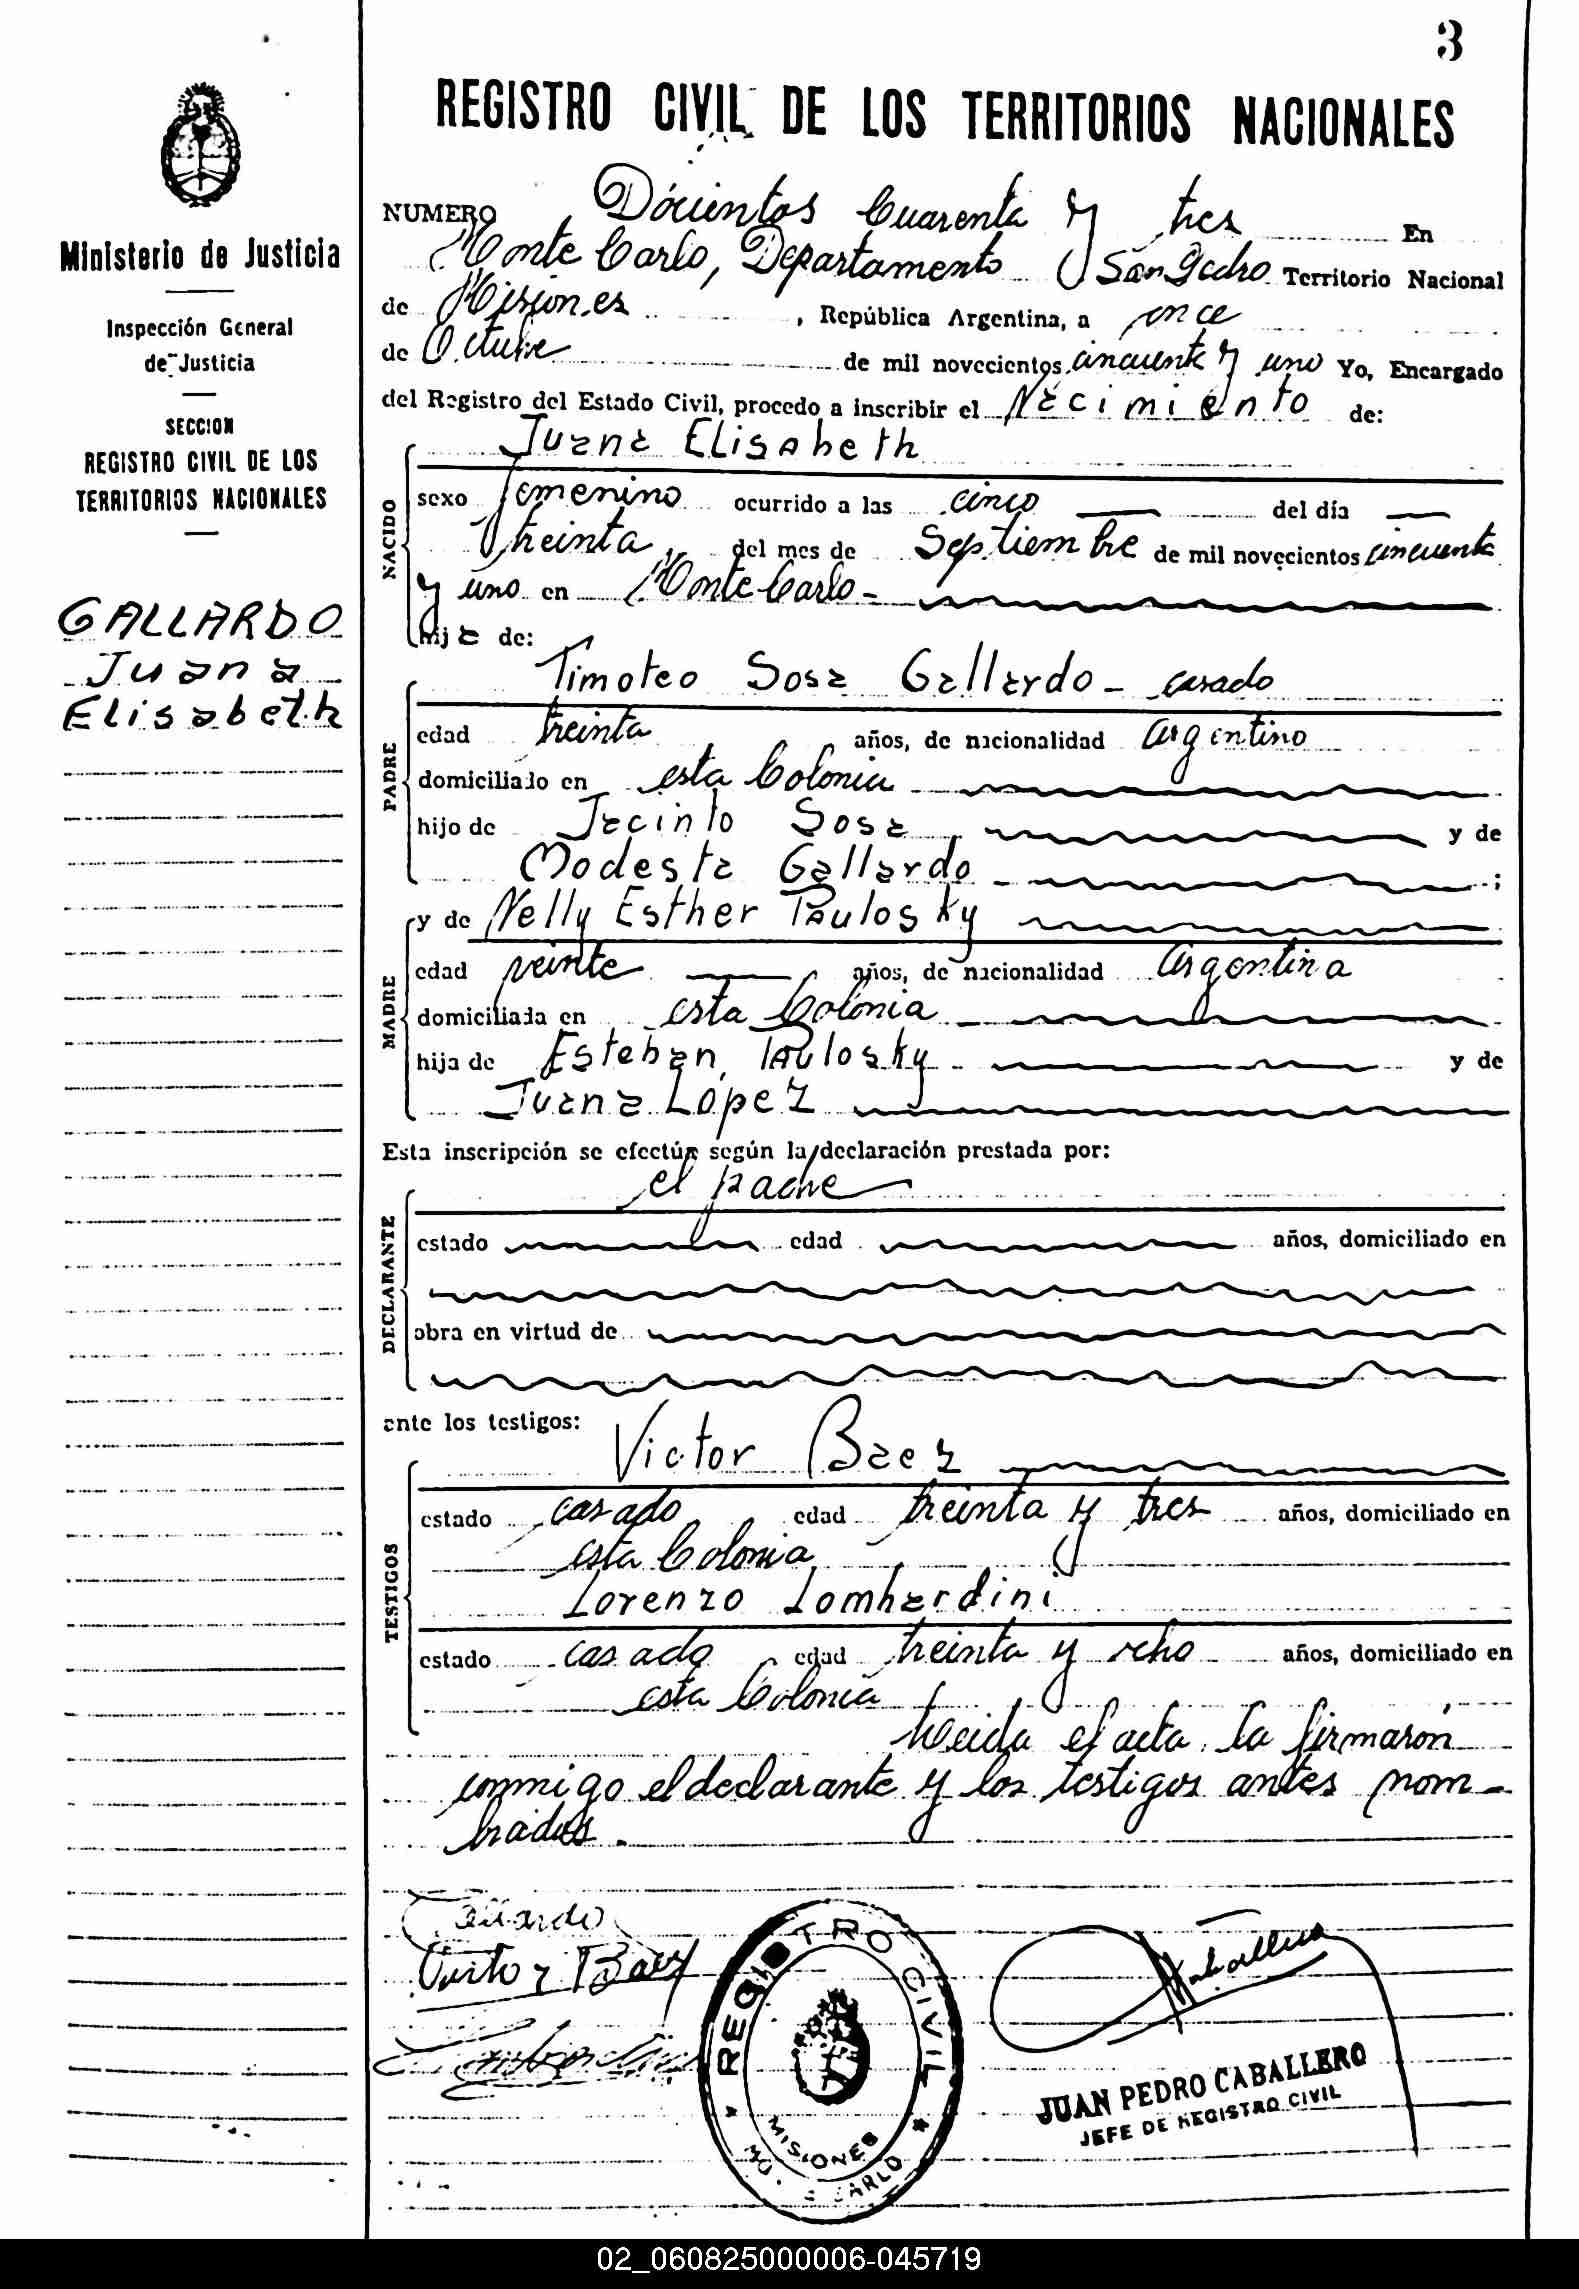 3
REGISTRO CIVIL DE LOS TERRITORIOS NACIONALES
Ministerio de Justicia
Inspección General
de Justicia
SECCION
REGISTRO CIVIL DE LOS
TERRITORIOS NACIONALES
GALLARDO
Juana
Elisabeth
NUMERO Docientos Cuarenta y tres En
Monte Carlo, Departamento San Pedro Territorio Nacional
de Misiones, República Argentina, a once
de Octubre de mil novecientos cincuenta y uno Yo, Encargado
del Registro del Estado Civil, procedo a inscribir el Nacimiento de:
NACIDO
Juana Elisabeth
sexo femenino ocurrido a las cinco — del día —
treinta del mes de Septiembre de mil novecientos cincuenta
y uno en Monte Carlo -
hija de:
PADRE
Timoteo Sosa Gallardo - casado
edad treinta años, de nacionalidad argentino
domiciliado en esta Colonia
hijo de Jacinto Sosa y de
Modesta Gallardo - ;
MADRE
y de Nelly Esther Paulosky
edad veinte — años, de nacionalidad argentina
domiciliada en esta Colonia
hija de Esteban Paulosky y de
Juana López
Esta inscripción se efectúa según la declaración prestada por:
DECLARANTE
el padre
estado edad años, domiciliado en
obra en virtud de
ante los testigos:
TESTIGOS
Victor Baez
estado casado edad treinta y tres años, domiciliado en
esta Colonia
Lorenzo Lombardini
estado casado edad treinta y ocho años, domiciliado en
esta Colonia
Leida el acta, la firmarón
conmigo el declarante y los testigos antes nom-
brados.
Gallardo
Victor Baez
REGISTRO CIVIL
MISIONES
JUAN PEDRO CABALLERO
JEFE DE REGISTRO CIVIL
02_060825000006-045719